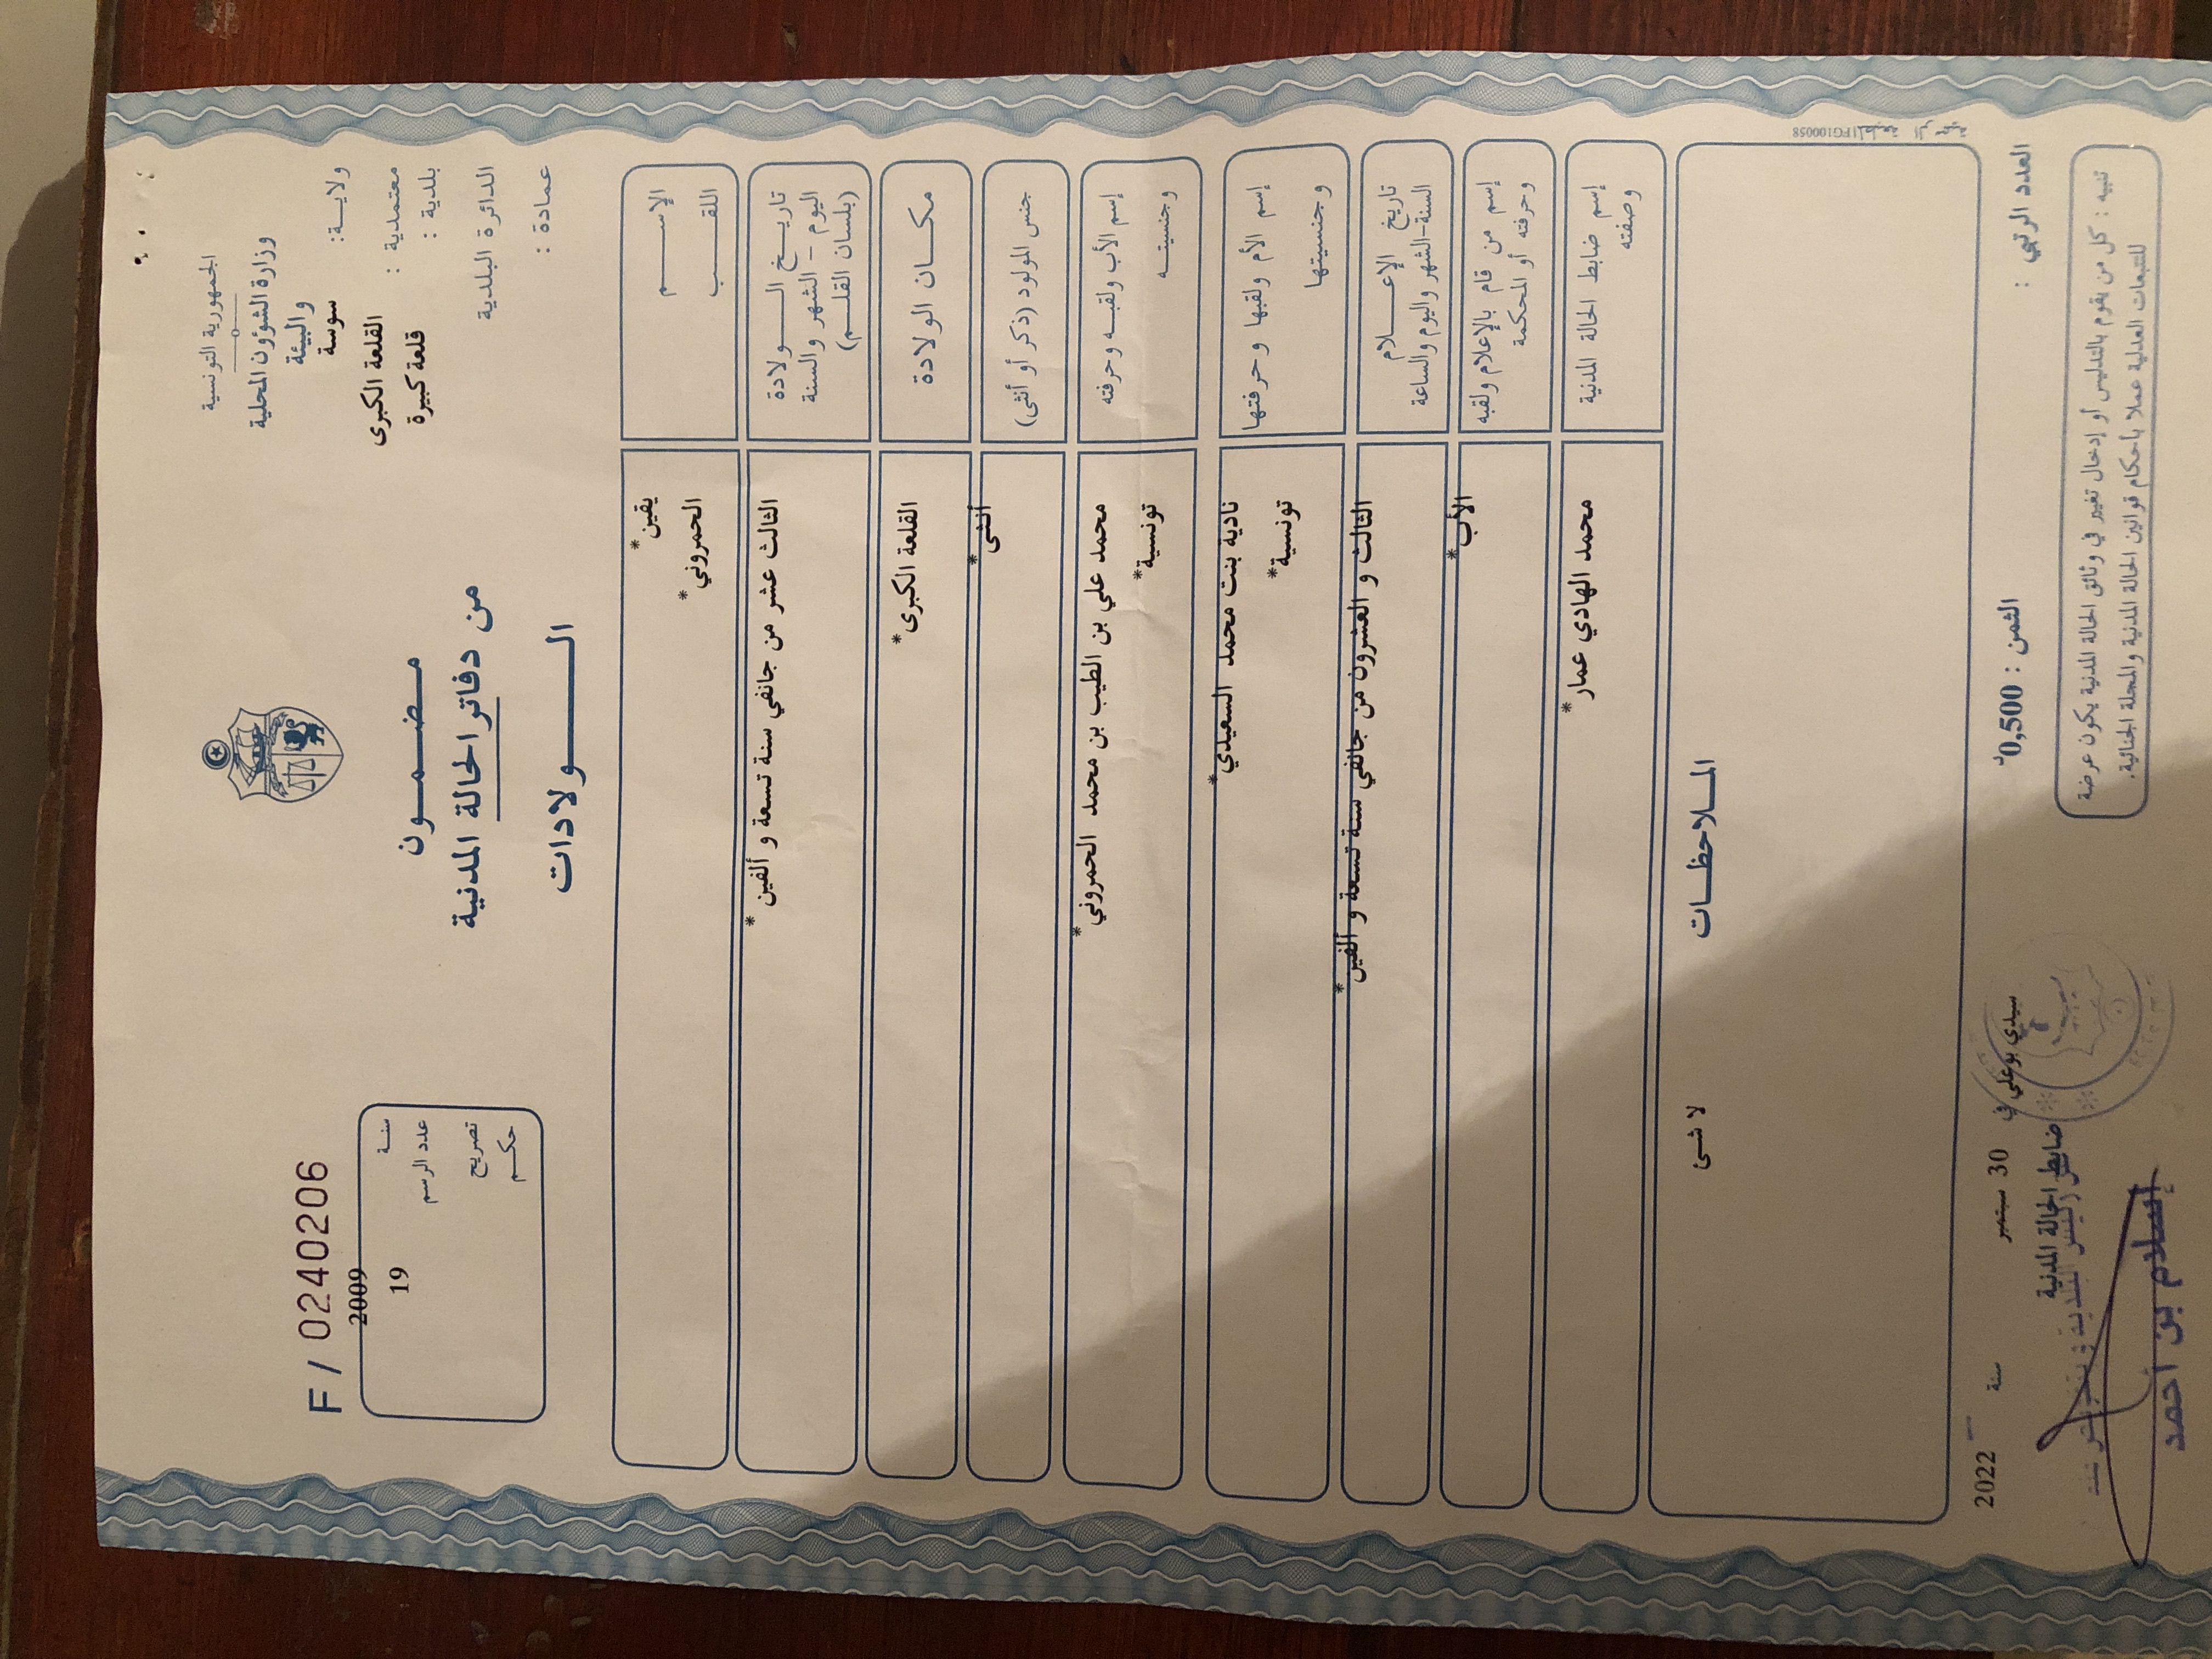 الجمهورية التونسية
وزارة الشؤون المحلية
والبيئة
ولاية: سوسة
معتمدية : القلعة الكبرى
بلدية : قلعة كبيرة
الدائرة البلدية
عمادة :
مضمون
من دفاتر الحالة المدنية
الولادات
F / 0240206
سنة 2009
عدد الرسم 19
تصريح
حكم
الإسم يقين*
اللقب الحمروني*
تاريخ الولادة الثالث عشر من جانفي سنة تسعة و ألفين *
اليوم - الشهر والسنة
(بلسان القلم)
مكان الولادة القلعة الكبرى*
جنس المولود (ذكر أو أنثى) أنثى*
إسم الأب ولقبه وحرفته محمد علي بن الطيب بن محمد الحمروني*
وجنسيته تونسية*
إسم الأم ولقبها وحرفتها نادية بنت محمد السعيدي*
وجنسيتها تونسية*
تاريخ الإعلام الثالث و العشرون من جانفي سنة تسعة و ألفين *
السنة-الشهر واليوم والساعة
إسم من قام بالإعلام ولقبه الأب*
وحرفته أو المحكمة
إسم ضابط الحالة المدنية محمد الهادي عمار*
وصفته
الملاحظات
لا شئ
FG100058
سيدي بوعلي في 30 سبتمبر سنة 2022
العدد الرتبي :
الثمن : 0,500د
ضابط الحالة المدنية
تنبيه : كل من يقوم بالتدليس أو إدخال تغيير في وثائق الحالة المدنية يكون عرضة
للتتبعات العدلية عملا بأحكام قوانين الحالة المدنية والمجلة الجنائية.
إسلام بن أحمد